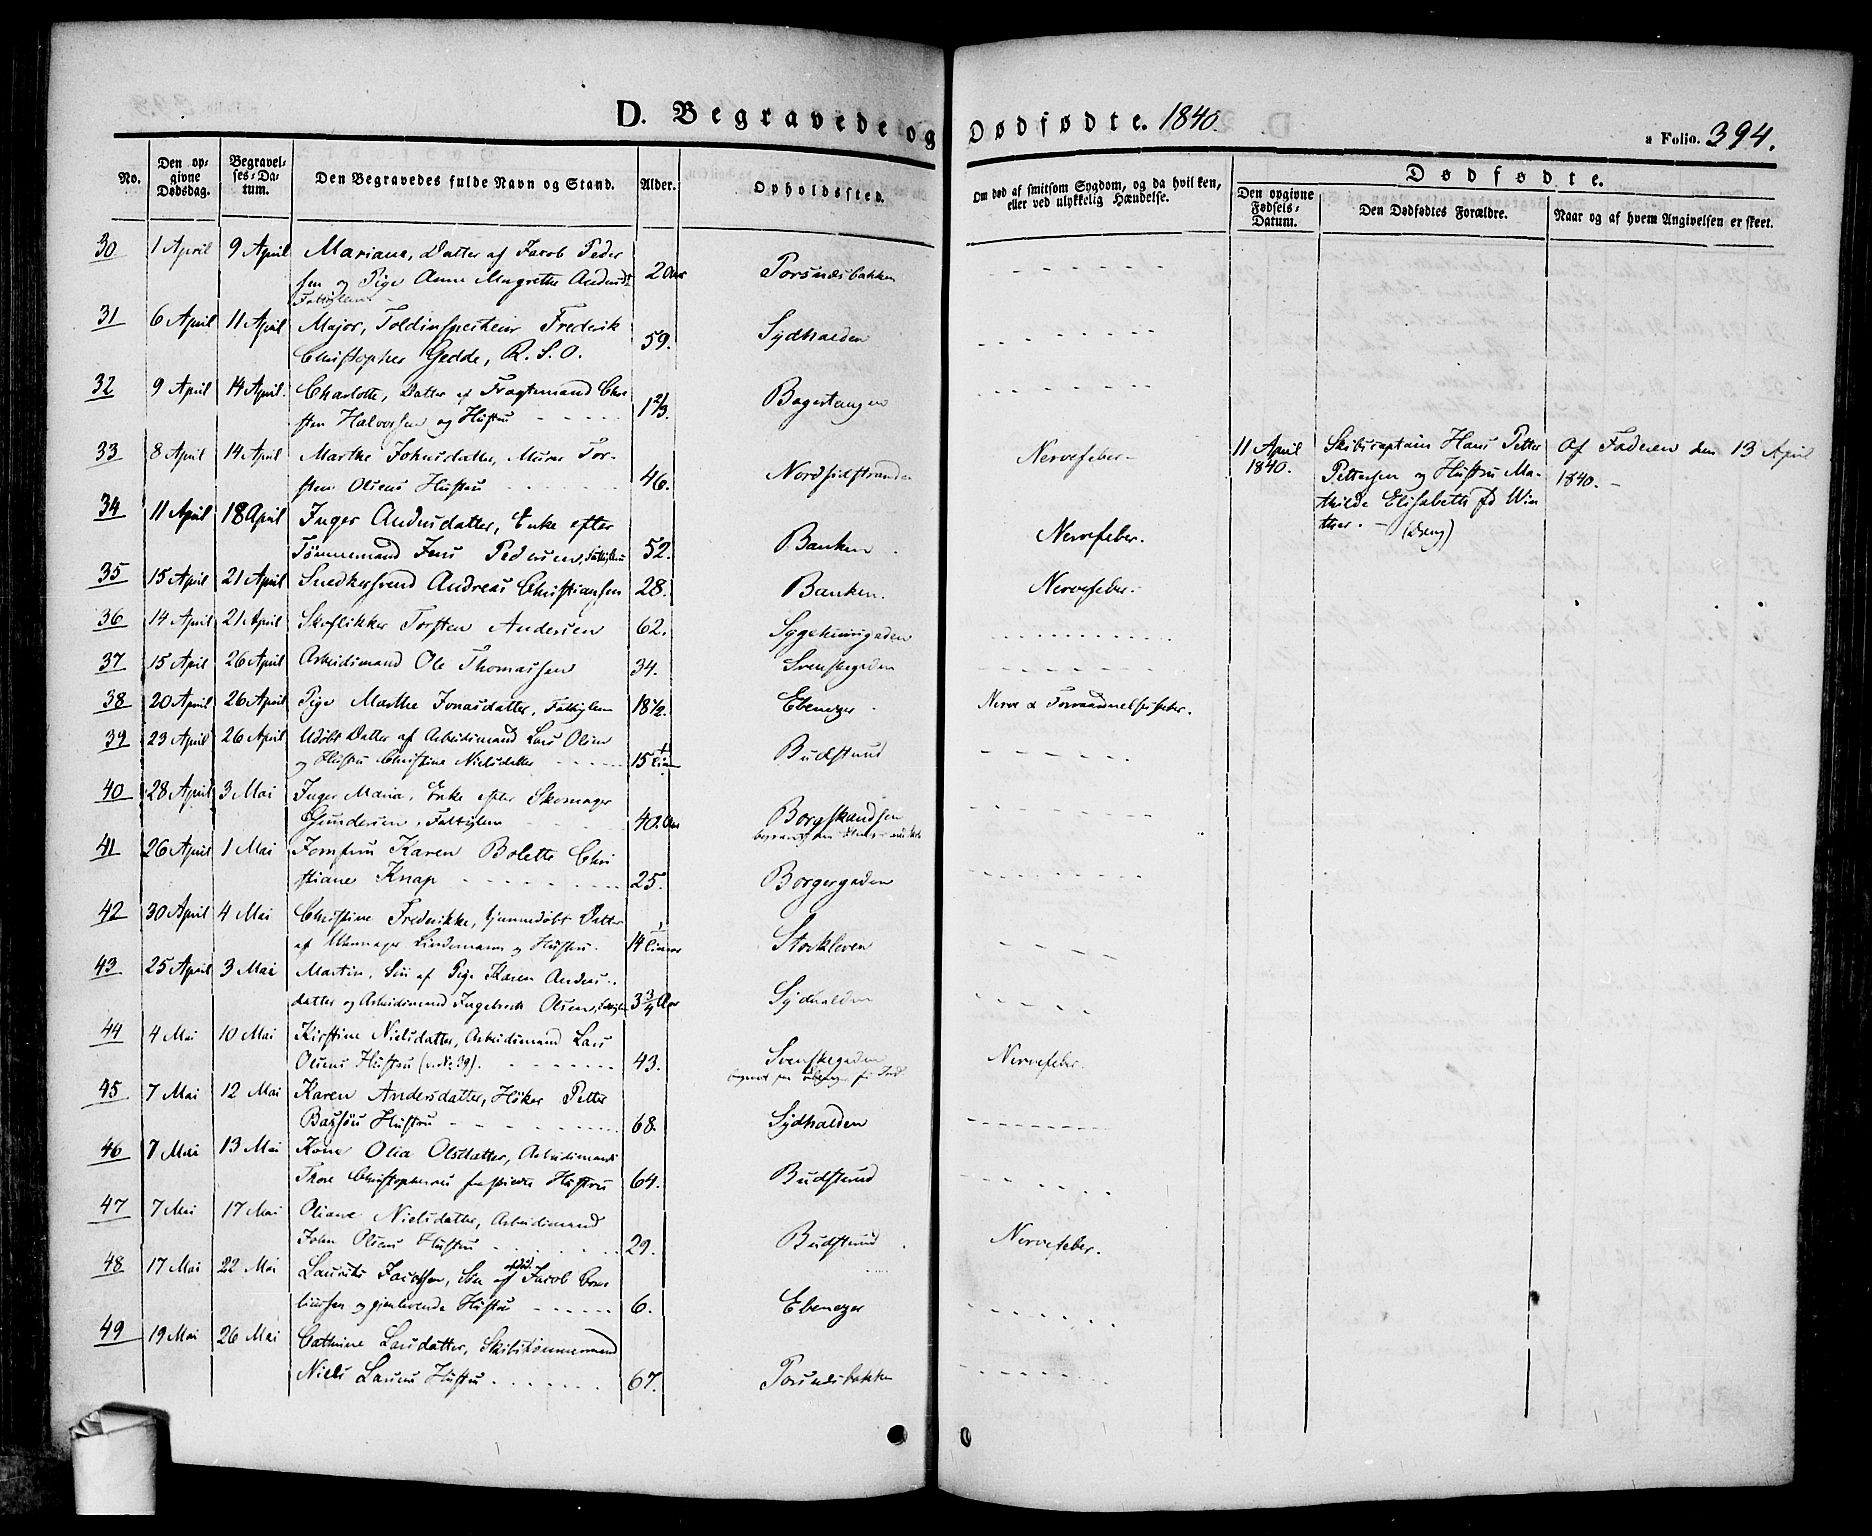 D. Begravede og Dødfødte. 1840.
a Folio. 394.
No.
Den opgivne Dødsdag.
Begravelses-Datum.
Den Begravedes fulde Navn og Stand.
Alder.
Opholdssted.
Om død af smitsom Sygdom, og da hvilken, eller ved ulykkelig Hændelse.
Dødfødte.
Den opgivne Fødsels-Datum.
Den Dødfødtes Forældre.
Naar og af hvem Angivelsen er skeet.
30 1 April 9 April Mariane, Datter af Jacob Peder
sen og Pige Anne Magrethe Andersdt 2 Aar Torsnæsbakken
Fattiglem
31 6 April 11 April Major, Toldinspecteur Frederik
Christopher Gedde, R. S. O. 59. Sydhalden
32 9 April 14 April. Charlotte, Datter af Fragtemand Chri
sten Halvorsen og Hustru 1 2/3. Bagertangen
33 8 April 14 April Marthe Johnsdatter, Murer Tor-
sten Olsens Hustru 46. Nordsidstranden Nervefeber
11 April 1840. Skibscaptain Hans Petter
Pettersen og Hustru Ma-
thilde Elisabeth fd Win
ther. - (Dreng)
Af Faderen den 13 April
1840. -
34 11 April 18 April Inger Andersdatter, Enke efter
Tømmermand Jens Pedersen, Fattiglem 52. Banken Nervefeber.
35 15 April 21 April Snedkersvend Andreas Christiansen 28. Banken. Nervefeber.
36 14 April 21 April Skoflikker Torsten Andersen 62. Sygehuusgaden
37 15 April 26 April Arbeidsmand Ole Thomassen 34. Svenskegaden
38 20 April 26 April Pige Marthe Jonasdatter, Fattiglem 18 1/2. Ebenezer Nerve & Forraadnelsesfeber.
39 23 April 26 April Udøbt Datter af Arbeidsmand Lars Olsen
og Hustru Christine Nielsdatter 15 Timer Budstrud
40 28 April 3 Mai Inger Maria, Enke efter Skomager
Gundersen, Fattiglem 40. Aar Borgskandsen
41 26 April 1 Mai Jomfru Karen Bolette Chri
stiane Knap 25. Borgergaden
42 30 April 4 Mai Christine Frederikke, hjemmedøbt Datter
af Uhrmager Lindemann og Hustru. 14 Timer Storkleven
43 25 April 3 Mai Martin, Søn af Pige Karen Anders-
datter og Arbeidsmand Ingebreth Olsen, Fattiglem 3 3/4 Aar Sydhalden
44 4 Mai 10 Mai Kirstine Nielsdatter, Arbeidsmand Lars
Olsens Hustru (v. No 39). 43. Svenskegaden Nervefeber.
45 7 Mai 12 Mai Karen Andersdatter, Høker Petter
Bassøes Hustru 68. Sydhalden
46 7 Mai 13 Mai Kone Olia Olsdatter, Arbeidsmand
Thore Christophersens fraskildte Hustru 64. Budstrud
47 7 Mai 17 Mai Oliane Nielsdatter, Arbeidsmand
John Olsens Hustru 29. Budstrud Nervefeber.
48 17 Mai 22 Mai Laurits Jacobsen, Søn af afdøde Jacob Cor
liussen og gjenlevende Hustru 6. Ebenezer
49 19 Mai 26 Mai Cathrine Larsdatter, Skibstømmermand
Niels Larsens Hustru 67. Torsnæsbakken